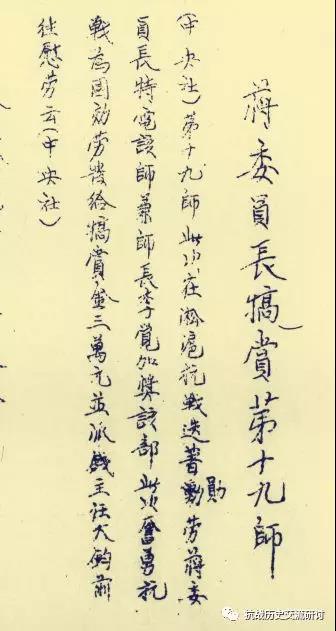 蔣委員長犒賞第十九師
(中央社)第十九師此次在淞滬抗戰迭著勛勞蔣委
員長特電該師兼師長李覺加獎該部此次奮勇抗
戰為國効勞發給犒賞金三萬元並派錢主任大鈞前
往慰勞云(中央社)
抗战历史交流研讨